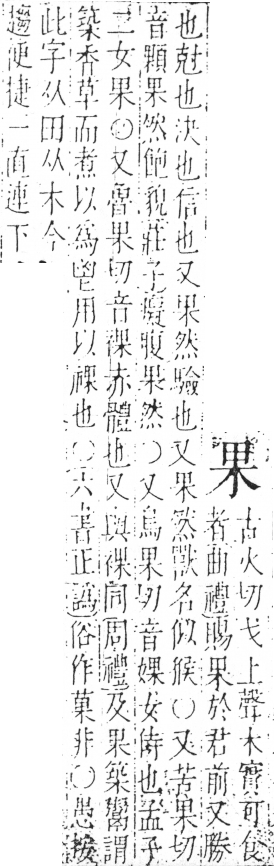 果
古火切戈上聲木實可食
者曲禮賜果於君前又勝
也尅也决也信也又果然驗也又果然獸名似猴〇又苦果切
音顆果然飽貌莊子腹猶果然〇又烏果切音婐女侍也孟子
二女果〇又魯果切音裸赤體也又與祼同周禮及果築鬻謂
築香草而煮以爲鬯用以祼也〇六書正譌俗作菓非〇愚按
此字从田从木今
趨便捷一直連下